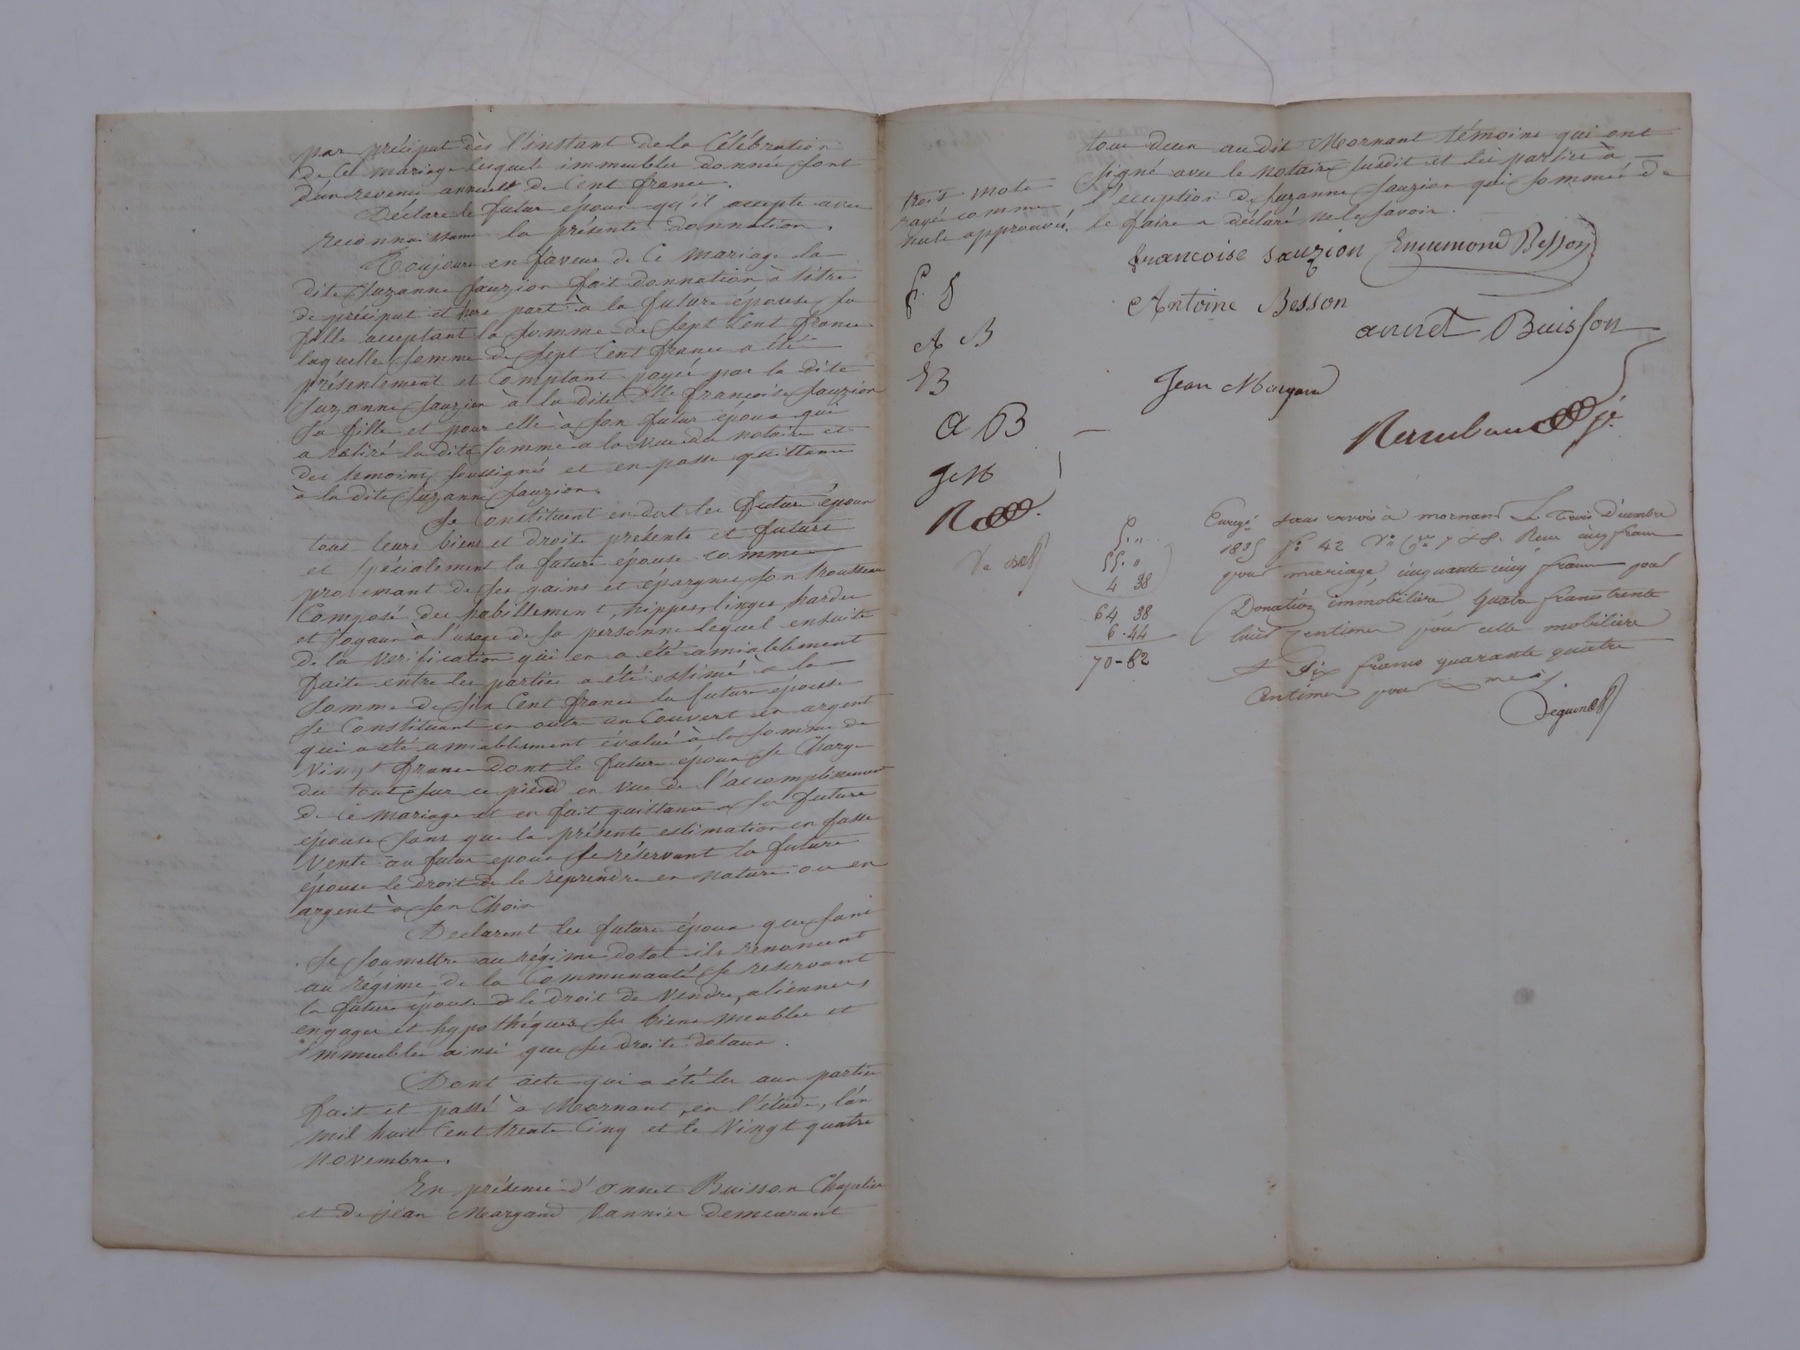 par préciput dès l'instant de la Célébration
de ce mariage lesquels immeubles donnés sont
d'un revenu annuel de Cent francs.
Déclare le futur époux qu'il accepte avec
reconnaissance la présente donnation.
Toujours en faveur de ce mariage la
dite Suzanne Sauzion fait donnation à titre
de préciput et hors part à la future épouse sa
fille acceptant la somme de sept Cent francs
laquelle somme de sept Cent francs a été
présentement et comptant payée par la dite
Suzanne Sauzion à la dite Dlle françoise Sauzion
sa fille et pour elle à son futur époux qui
a retiré la dite somme à la vue du notaire et
des témoins soussignés et en passe quittance
à la dite Suzanne Sauzion.
Se Constituent en dot les future époux
tous leurs biens et droits présents et futurs
et spécialement la future épouse comme
provenant de ses gains et épargnes son trousseau
Composé des habillement, nippes, linges, hardes
et Joyaux à l'usage de sa personne lequel ensuite
de la vérification qui en a été amiablement
faite entre les parties a été estimé à la
somme de six Cent francs la future épouse
se Constituant en outre un Couvert en argent
qui a été amiablement évalué à la somme de
Vingt francs dont le futur époux se charge
du tout sur ce pied en vue de l'accomplissement
de ce mariage et en fait quittance à la future
épouse sans que la présente estimation en fasse
vente au futur époux se réservant la future
épouse le droit de le reprendre en nature ou en
argent à son Choix
Déclarent les futurs époux que sans
se soumettre au régime dotal ils renoncent
au régime de la Communauté se réservant
la future épouse le droit de vendre, aliéner
engager et hypothéquer ses biens meubles et
immeubles ainsi que ses droits dotaux.
Dont acte qui a été lu aux parties
fait et passé à Mornant, en l'étude, l'an
mil huit Cent trente Cinq et le Vingt quatre
novembre.
En présence d'Annet Buisson Chapelier
et de jean Margand Vannier demeurant
tous deux au dit Mornant témoins qui ont
signé avec le notaire susdit et les parties à
l'exception de Suzanne Sauzion qui sommée de
le faire a déclaré ne le savoir.
trois mots
rayés comme
nuls approuvés.
françoise sauzion Ennemond Besson
f. S
Antoine Besson
annet Buisson
A B
EB
Jean Margand
A B
J M
5. "
55. "
4 38
64 38
6. 44
70-82
Enregé sans renvoi à mornant Le trois Décembre
1835 fo 42 Vo Ces 7 & 8. Reçu cinq francs
pour mariage, cinquante cinq francs pour
Donation immobilière, quatre francs trente
huit centimes pour celle mobilière
& Six francs quarante quatre
Centimes pour